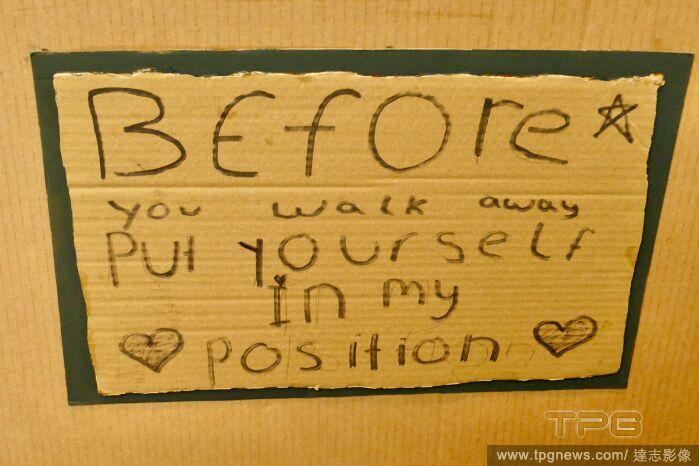 BEfOre
you walk away
Put yourself
In my
position
TPG
www.tpgnews.com/ 達志影像